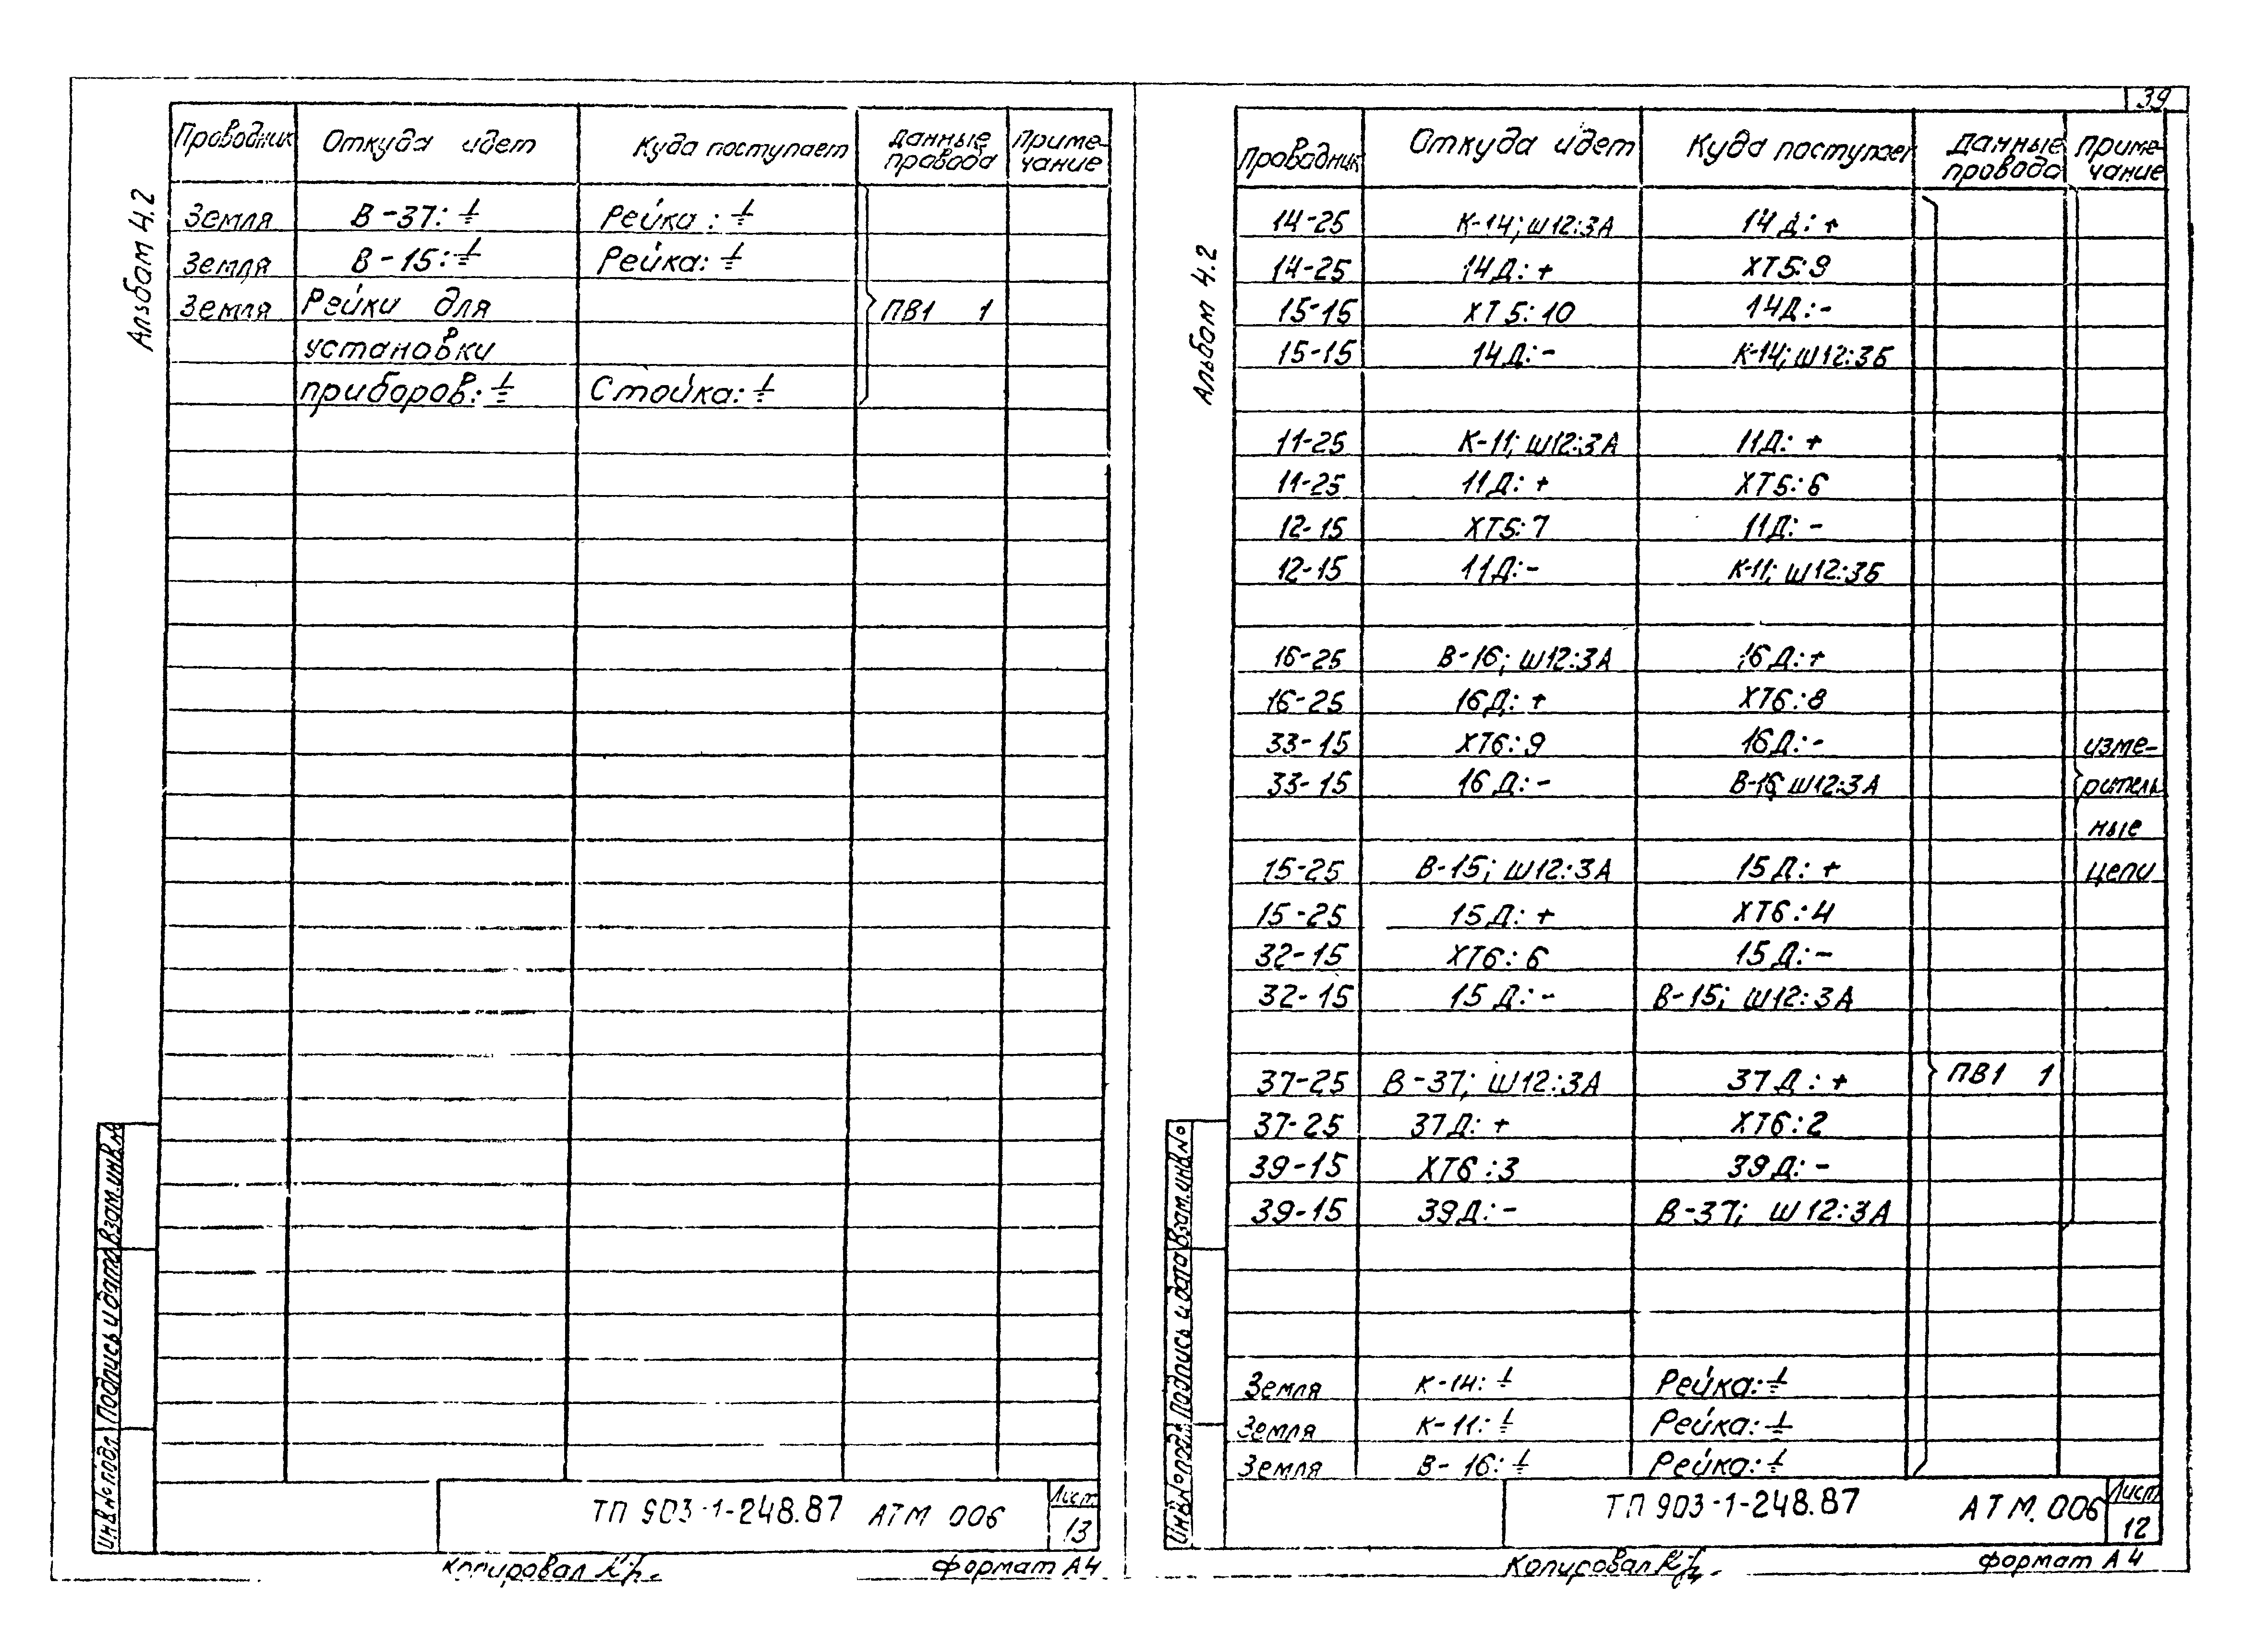 39
Альбом 4.2
Проводник Откуда идет Куда поступает Данные провода Приме-чание
Земля В-37: ⏚ Рейка: ⏚
Земля В-15: ⏚ Рейка: ⏚
Земля Рейки для ПВ1 1
установки
приборов: ⏚ Стойка: ⏚
Инв.№ подл. Подпись и дата Взам.инв.№
ТП 903-1-248.87 АТМ 006
Лист
13
Копировал
Формат А4
Альбом 4.2
Проводник Откуда идет Куда поступает Данные провода Приме-чание
14-25 К-14; Ш12:3А 14Д: +
14-25 14Д: + ХТ5:9
15-15 ХТ5:10 14Д: -
15-15 14Д: - К-14; Ш12:3Б
11-25 К-11; Ш12:3А 11Д: +
11-25 11Д: + ХТ5:6
12-15 ХТ5:7 11Д: -
12-15 11Д: - К-11; Ш12:3Б
16-25 В-16; Ш12:3А 16Д: +
16-25 16Д: + ХТ6:8
33-15 ХТ6:9 16Д: - изме-
33-15 16Д: - В-16; Ш12:3А ритель
ные
15-25 В-15; Ш12:3А 15Д: + цепи
15-25 15Д: + ХТ6:4
32-15 ХТ6:6 15Д: -
32-15 15Д: - В-15; Ш12:3А
37-25 В-37; Ш12:3А 37Д: + ПВ1 1
37-25 37Д: + ХТ6:2
39-15 ХТ6:3 39Д: -
39-15 39Д: - В-37; Ш12:3А
Земля К-14: ⏚ Рейка: ⏚
Земля К-11: ⏚ Рейка: ⏚
Земля В-16: ⏚ Рейка: ⏚
Инв.№ подл. Подпись и дата Взам.инв.№
ТП 903-1-248.87 АТМ. 006
Лист
12
Копировал
Формат А4